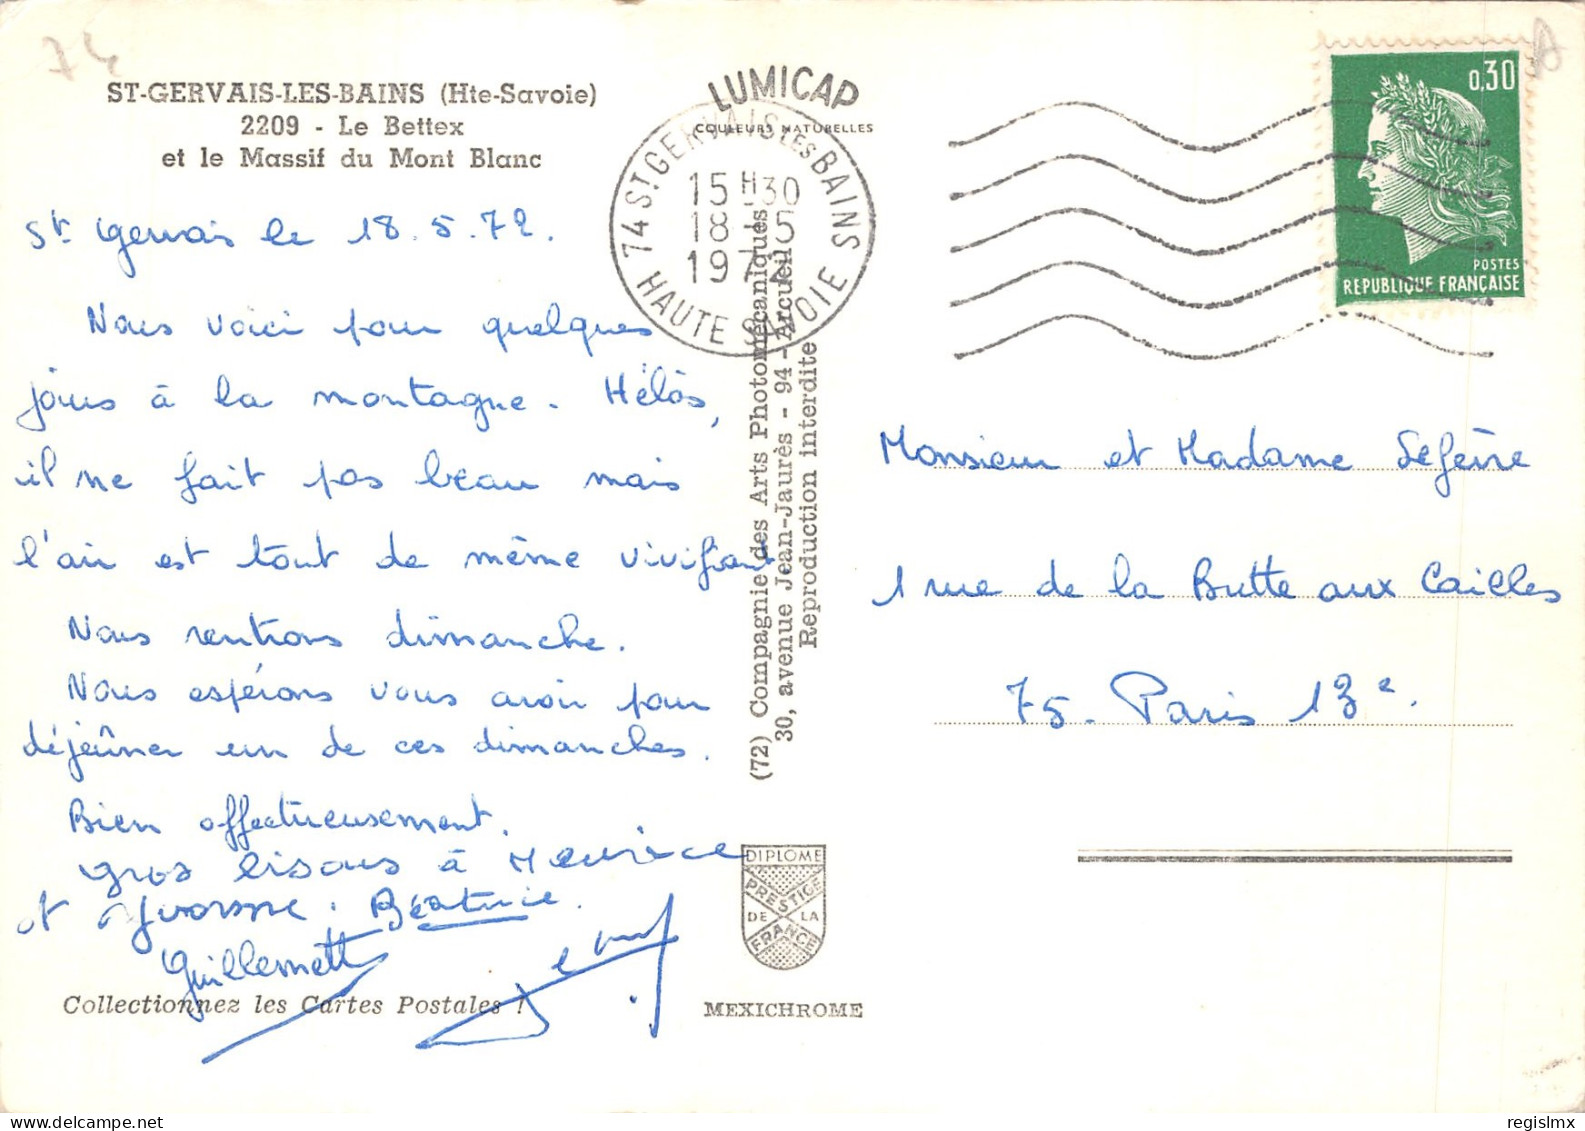 74
ST-GERVAIS-LES-BAINS (Hte-Savoie)
2209 - Le Bettex
et le Massif du Mont Blanc
St Gervais le 18.5.72.
Nous voici pour quelques
jours à la montagne. Hélàs,
il ne fait pas beau mais
l'air est tout de même vivifiant.
Nous rentrons dimanche.
Nous espérons vous avoir pour
déjeûner un de ces dimanches.
Bien affectueusement.
gros bisous à Maurice
et Yvonne. Béatrice.
Guillemette
Collectionnez les Cartes Postales !
LUMICAP
COULEURS NATURELLES
74 ST GERVAIS LES BAINS
15 H30
18-5
1972
HAUTE SAVOIE
(72) Compagnie des Arts Photomécaniques
30, avenue Jean-Jaurès - 94 - Arcueil
Reproduction interdite
DIPLOME
PRESTIGE
DE LA
FRANCE
MEXICHROME
0,30
POSTES
REPUBLIQUE FRANÇAISE
Monsieur et Madame Lefèvre
1 rue de la Butte aux Cailles
75. Paris 13e.
regislmx